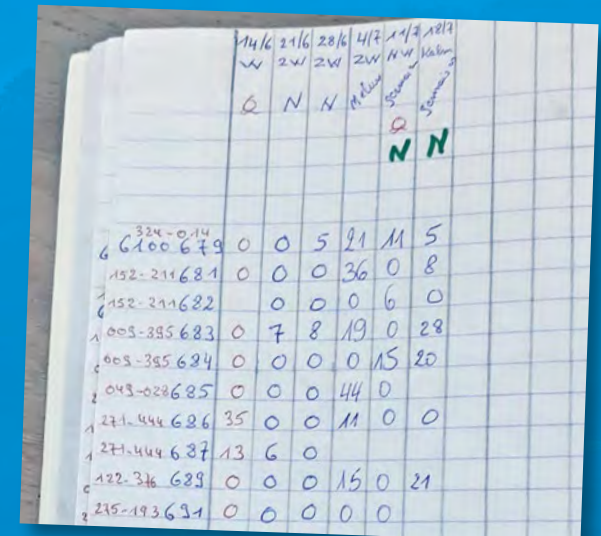 14/6 21/6 28/6 4/7 11/7 18/7
W ZW ZW ZW NW Kalm
Q N N Samais Samais
Q
N N
324-014
6 6100679 0 0 5 21 11 5
152-211681 0 0 0 36 0 8
152-211682 0 0 0 6 0
1 009-395683 0 7 8 19 0 28
009-395684 0 0 0 0 15 20
2 049-028685 0 0 0 44 0
1 271-444686 35 0 0 11 0 0
1 271-444687 13 6 0
122-376 689 0 0 0 15 0 21
2 275-193691 0 0 0 0 0